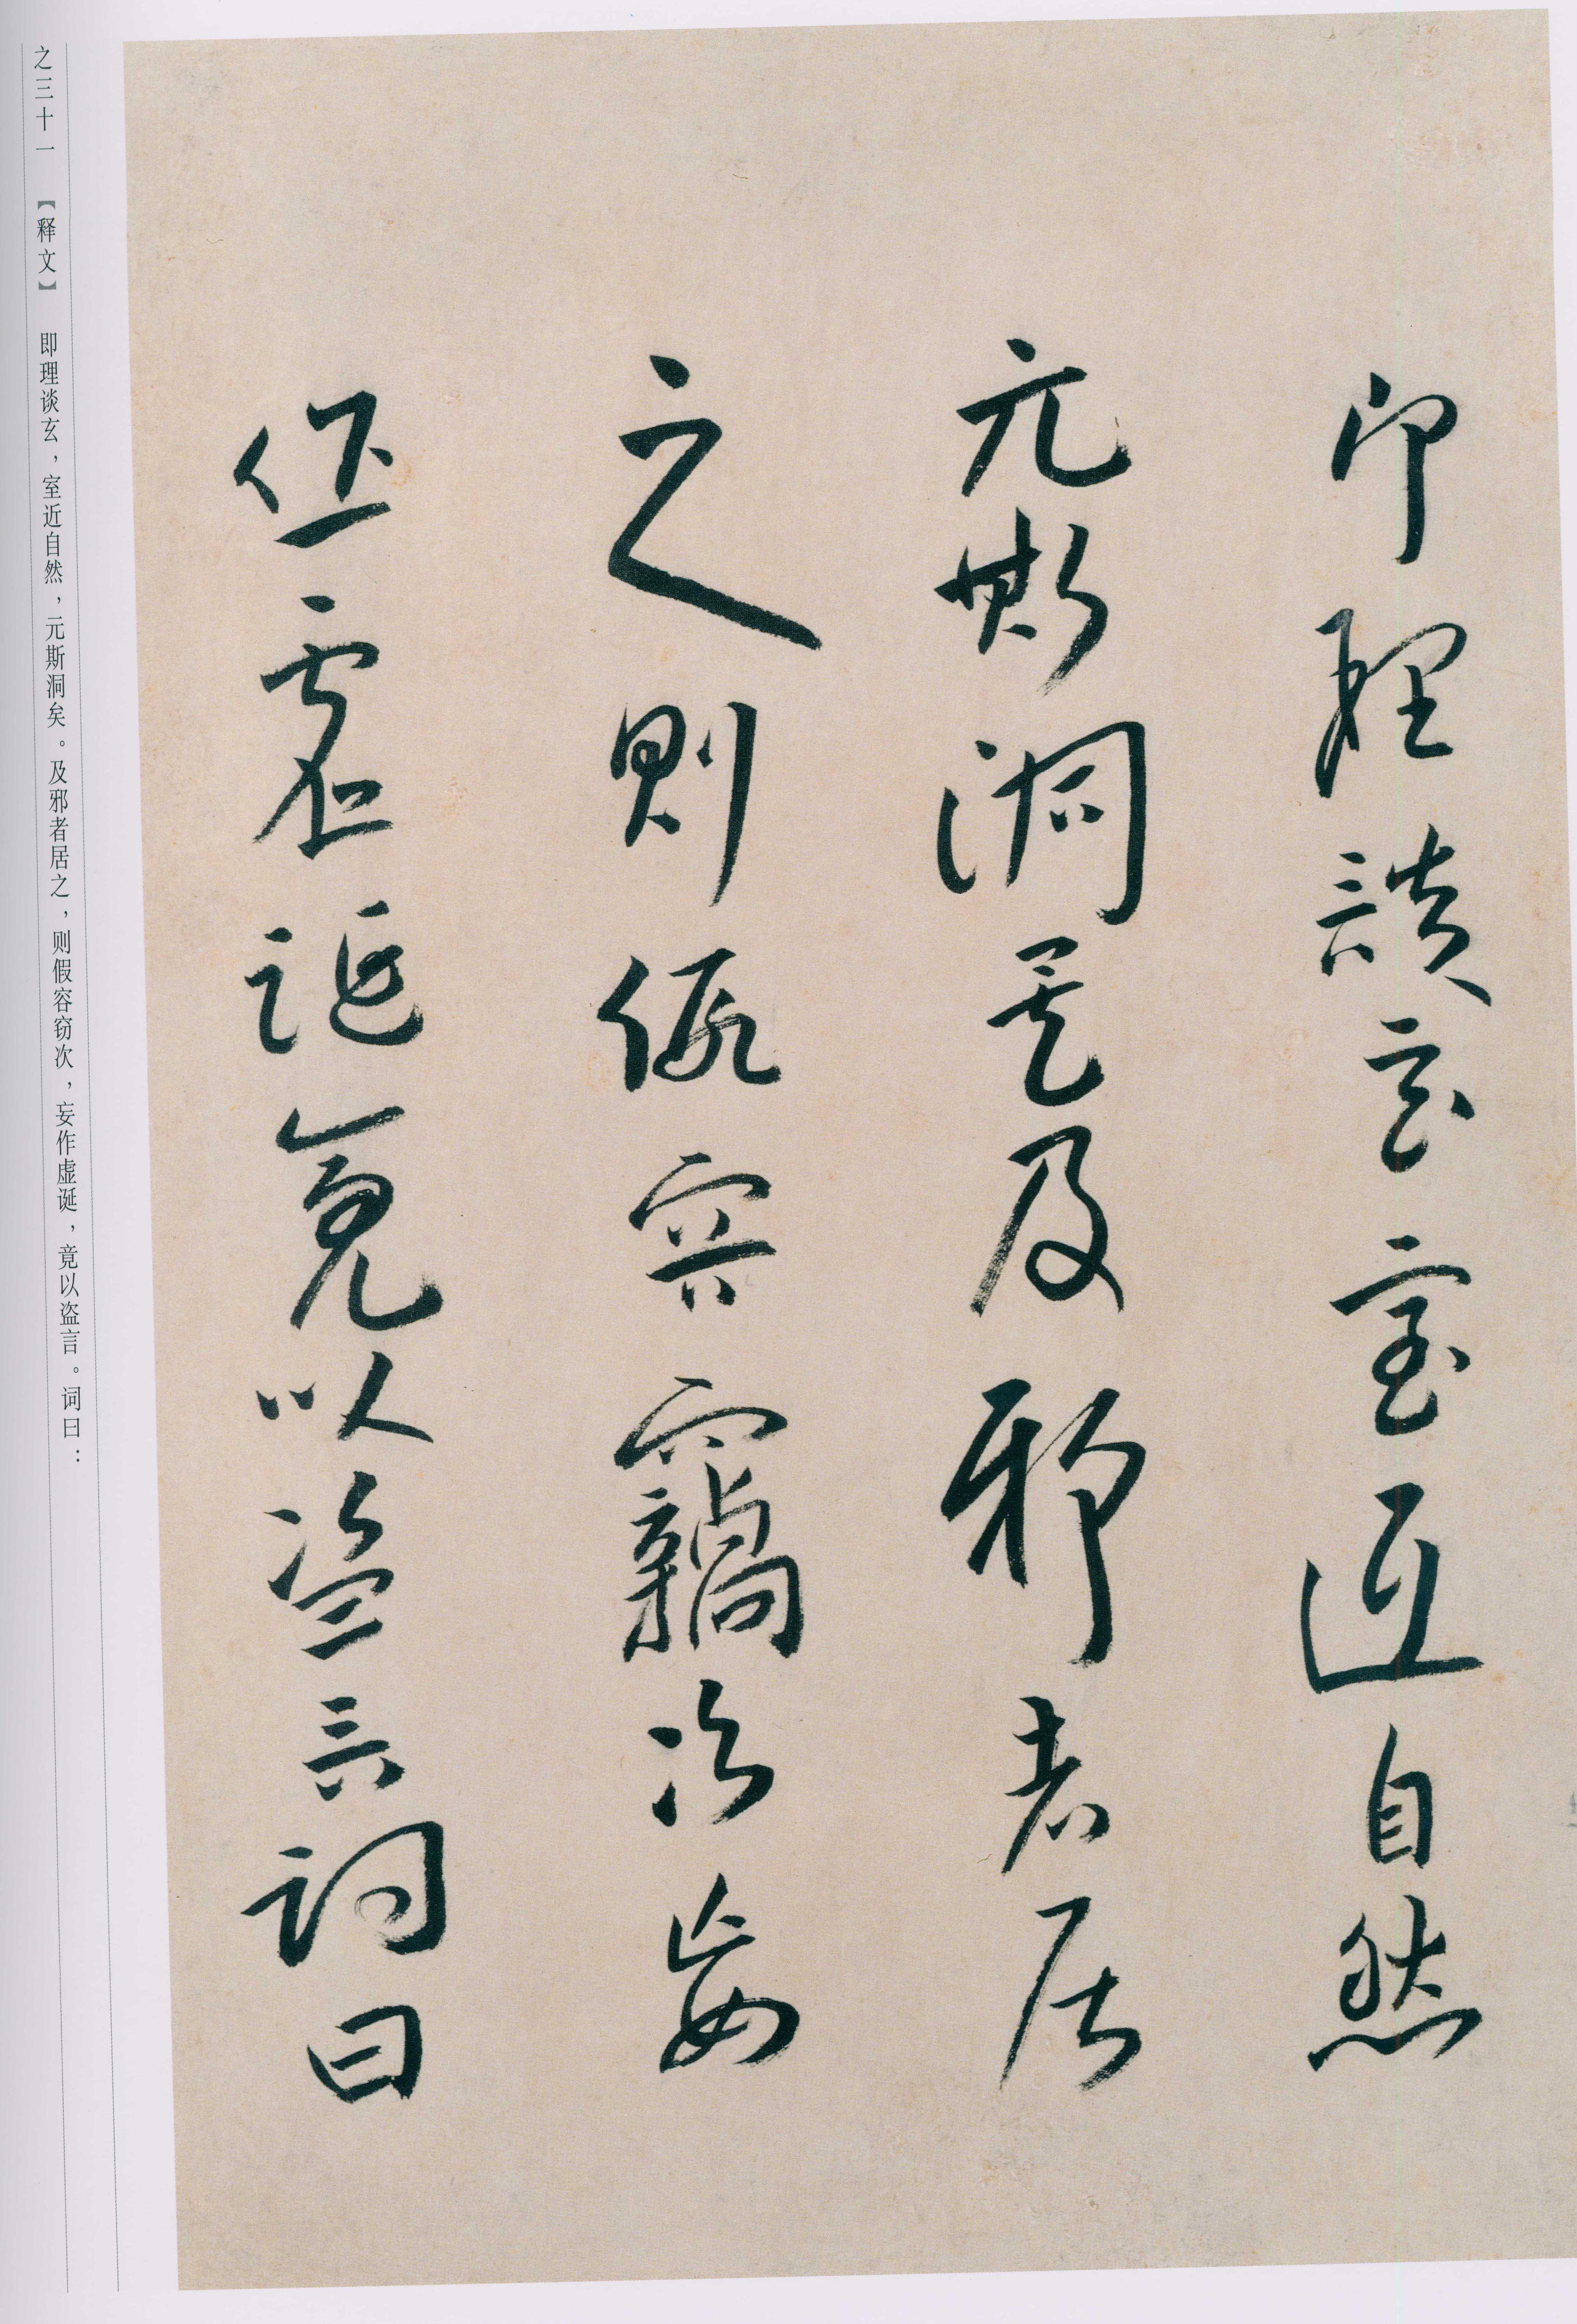 即理談玄室近自然
元斯洞矣及邪者居
之則假容竊次妄
作虛誕竟以盜言詞曰
之三十一 【释文】 即理谈玄，室近自然，元斯洞矣。及邪者居之，则假容窃次，妄作虚诞，竟以盗言。词曰：